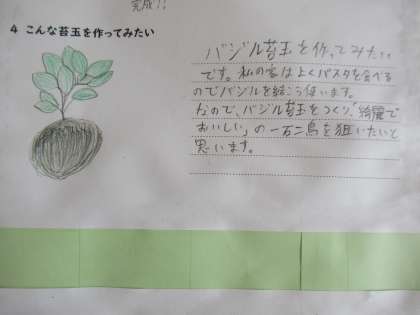 完成!!
4 こんな苔玉を作ってみたい
バジル苔玉を作ってみたい
です。私の家はよくパスタを食べる
のでバジルを結こう使います。
なので、バジル苔玉をつくり、「綺麗で
おいしい」の一石二鳥を狙いたいと
思います。